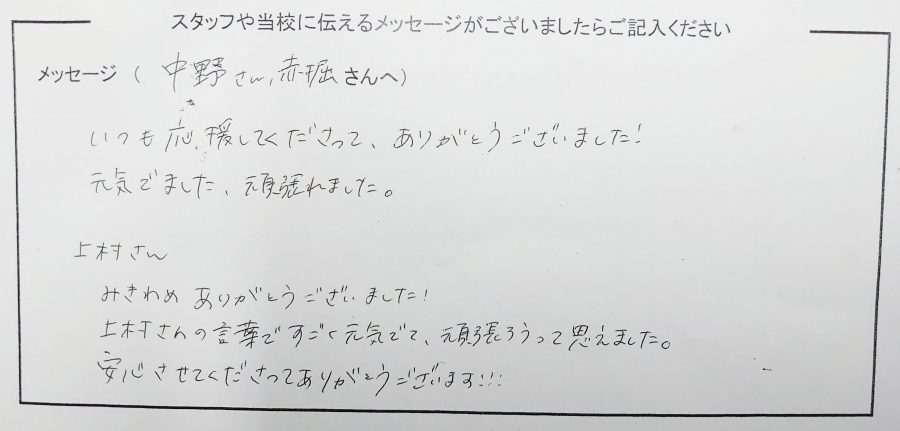 スタッフや当校に伝えるメッセージがございましたらご記入ください
メッセージ ( 中野さん,赤堀さんへ)
いつも応援してくださって、ありがとうございました!
元気でました、頑張れました。
上村さん
みきわめ ありがとうございました!
上村さんの言葉ですごく元気でて、頑張ろうって思えました。
安心させてくださってありがとうございます!!!